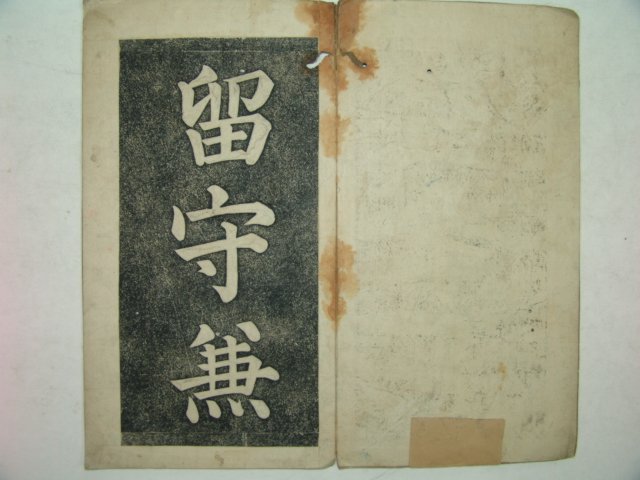 留守兼